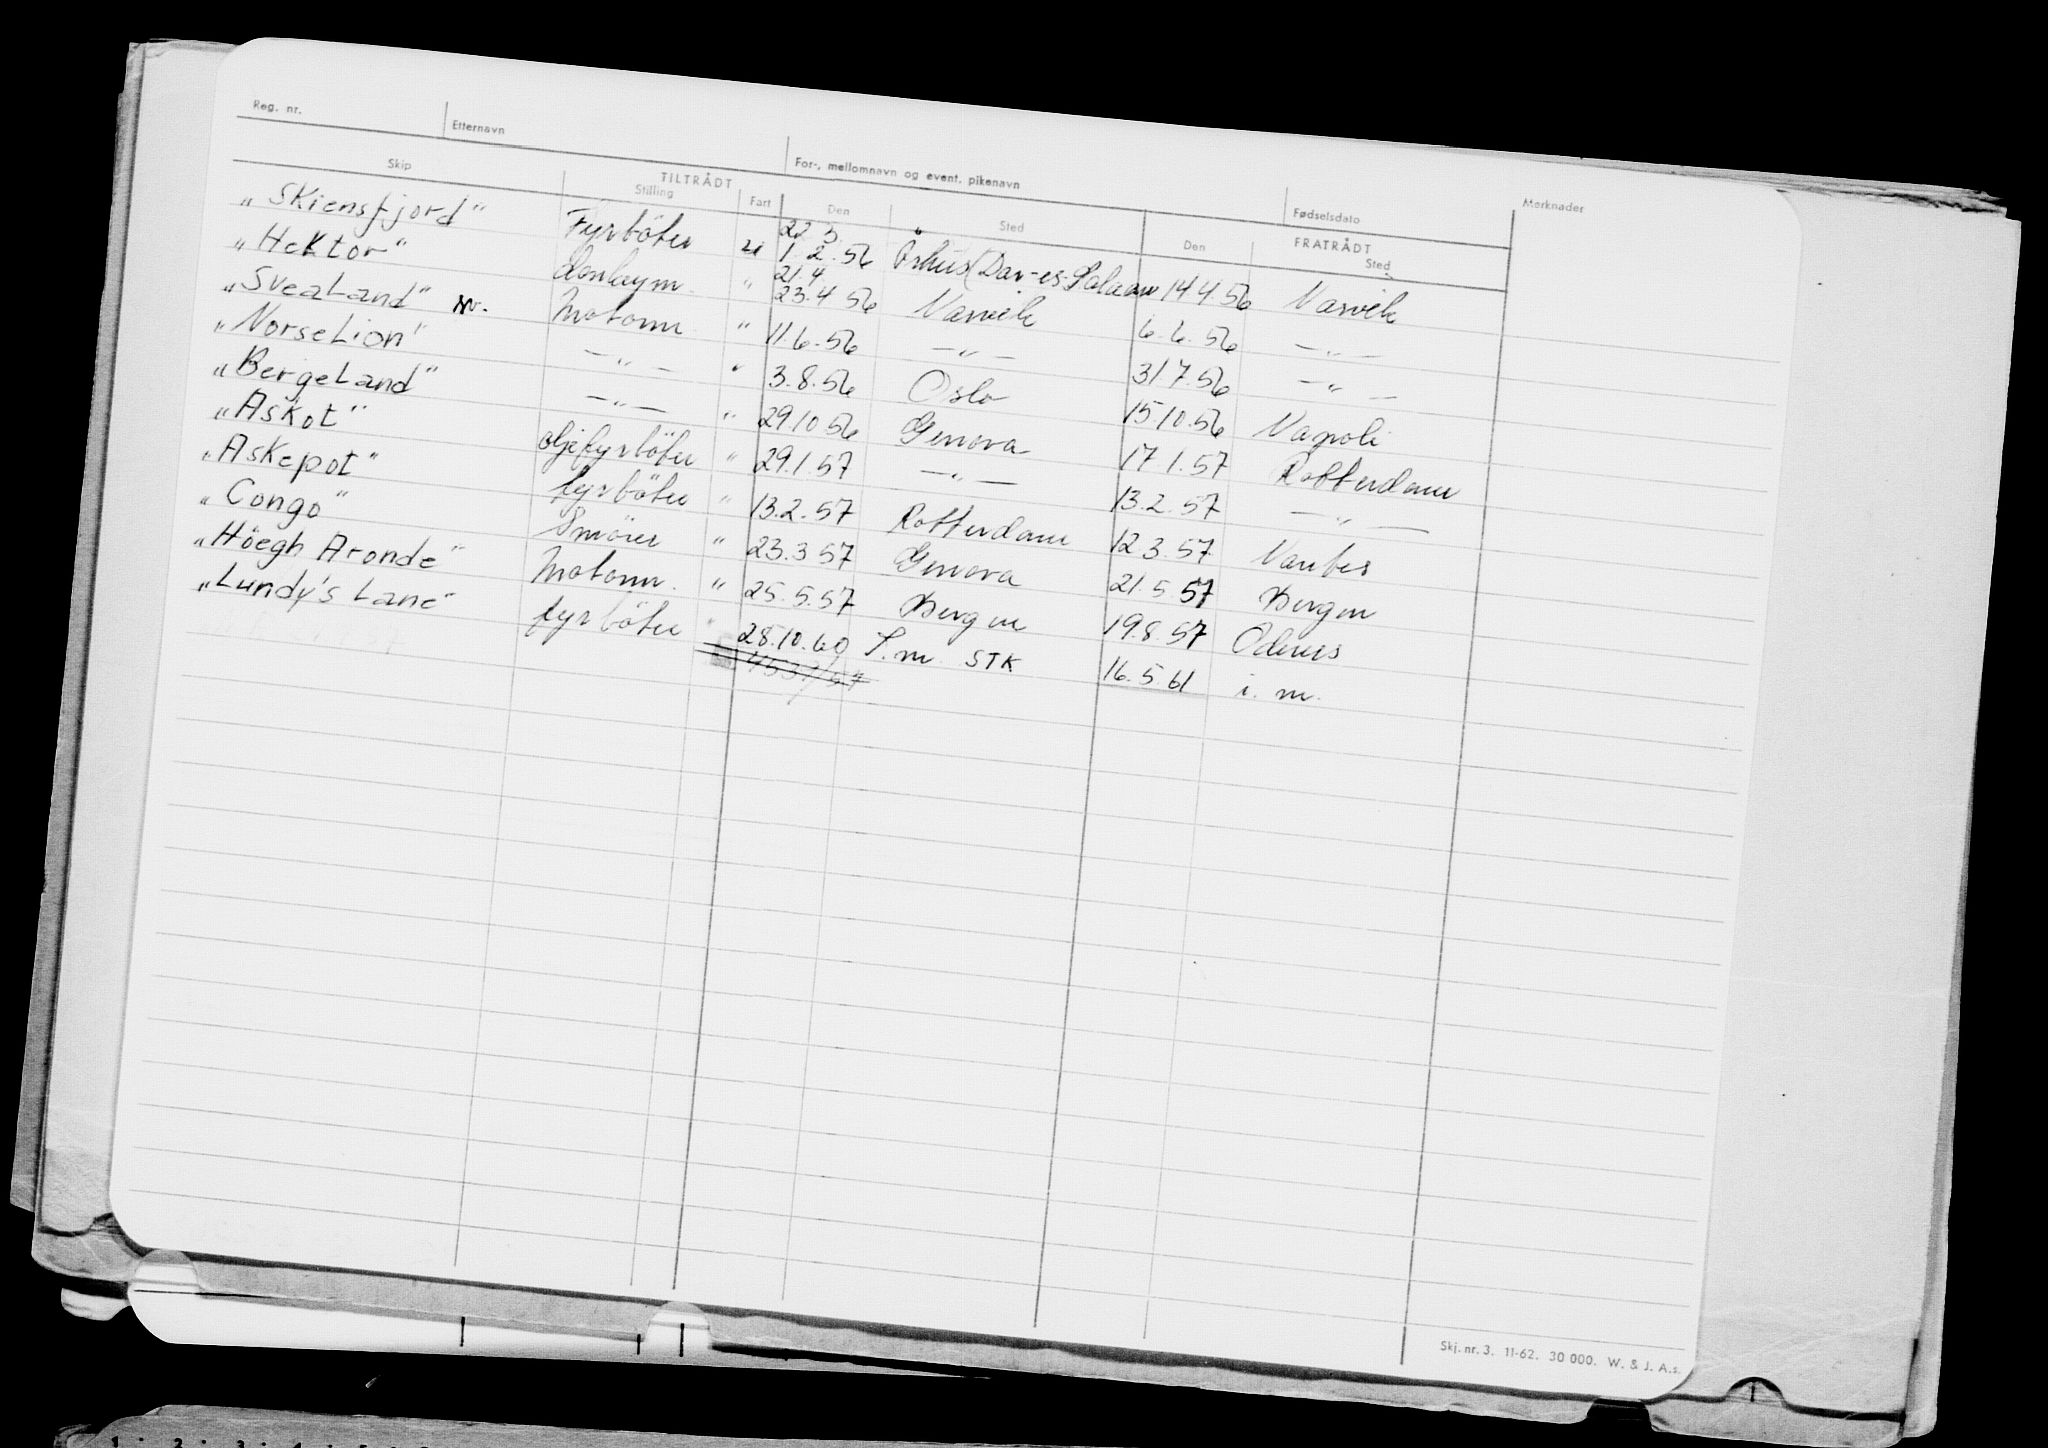 Reg. nr. Etternavn For-, mellomnavn og event. pikenavn Fødselsdato Merknader
Skip TILTRÅDT FRATRÅDT
Stilling Fart Den Sted Den Sted
22 3.
„Skiensfjord" Fyrböter u 1. 2. 56 Århus (Dar-es-Salaam 14 4. 56 Narvik
21.4
„Hektor" donkeym. " 23.4 56 Narvik 6. 6. 56 —"—
„Svealand" Motorm " 11.6.56 —"— 31.7.56 —"—
„Norse Lion" —"— " 3.8.56 Oslo 15.10.56 Napoli
„Bergeland" —"— " 29.10 56 Genova 17.1.57 Rotterdam
„Askot" oljefyrböter " 29.1.57 —"— 13.2.57 —"—
„Askepot" fyrböter " 13.2.57 Rotterdam 12 3.57 Nantes
„Congo" Smörer " 23.3 57 Genova 21.5 57 Bergen
„Höegh Aronde" Motorm. " 25.5.57 Bergen 19.8.57 Odense
„Lundy's Lane" fyrböter " 28.10.60 I.m. STK 16.5.61 i. m.
4537/57
Skj. nr. 3. 11-62. 30 000. W. & J. A.s.
1 2 3 4 5